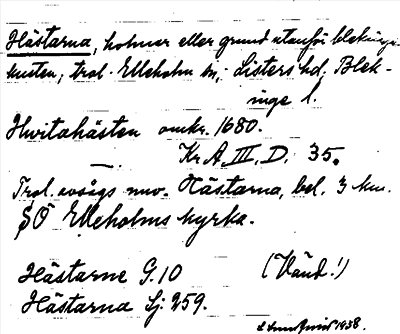 Hästarna, holmar eller grund utanför blekinge-
kusten, trol. Elleholm sn, Listers hd, Blek-
inge l.
Hwitahästen omkr. 1680.
Kr. A. III. D. 35.
Trol. avsågs nuv. Hästarna, bel. 3 km.
SÖ Elleholms kyrka.
Hästarne G. 10 (Vänd!)
Hästarna Sj. 259.
1938.